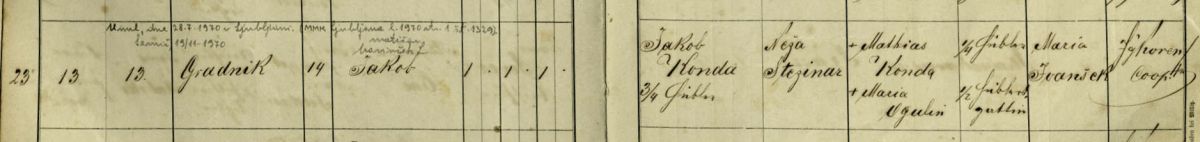 Umrl, dne 28.7.1970 v Ljubljani. (MMK Ljubljana l. 1970 str. 1329)
Semič, 19/11-1970 matičar
23 13 13. Gradnik 14 Jakob 1 . 1 . 1 .
Jakob
Konda
3/4 Hübler
Neža
Stezinar
+ Mathias
Konda
+ Maria
Ogulin
1/4 Hübler
1/2 Hüblers
gattin
Maria
Ivanšek
Coop